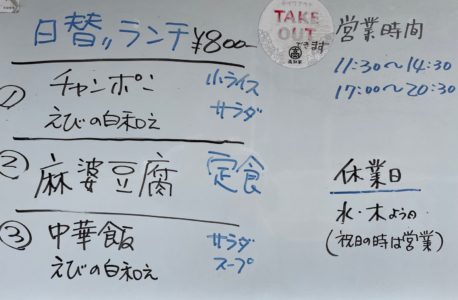 日替〃ランチ ¥800-
① チャンポン 小ライス
えびの白和え サラダ
② 麻婆豆腐 定食
③ 中華飯 サラダ
えびの白和え スープ
TAKE
OUT
できます
営業時間
11:30〜14:30
17:00〜20:30
休業日
水・木よう日
(祝日の時は営業)